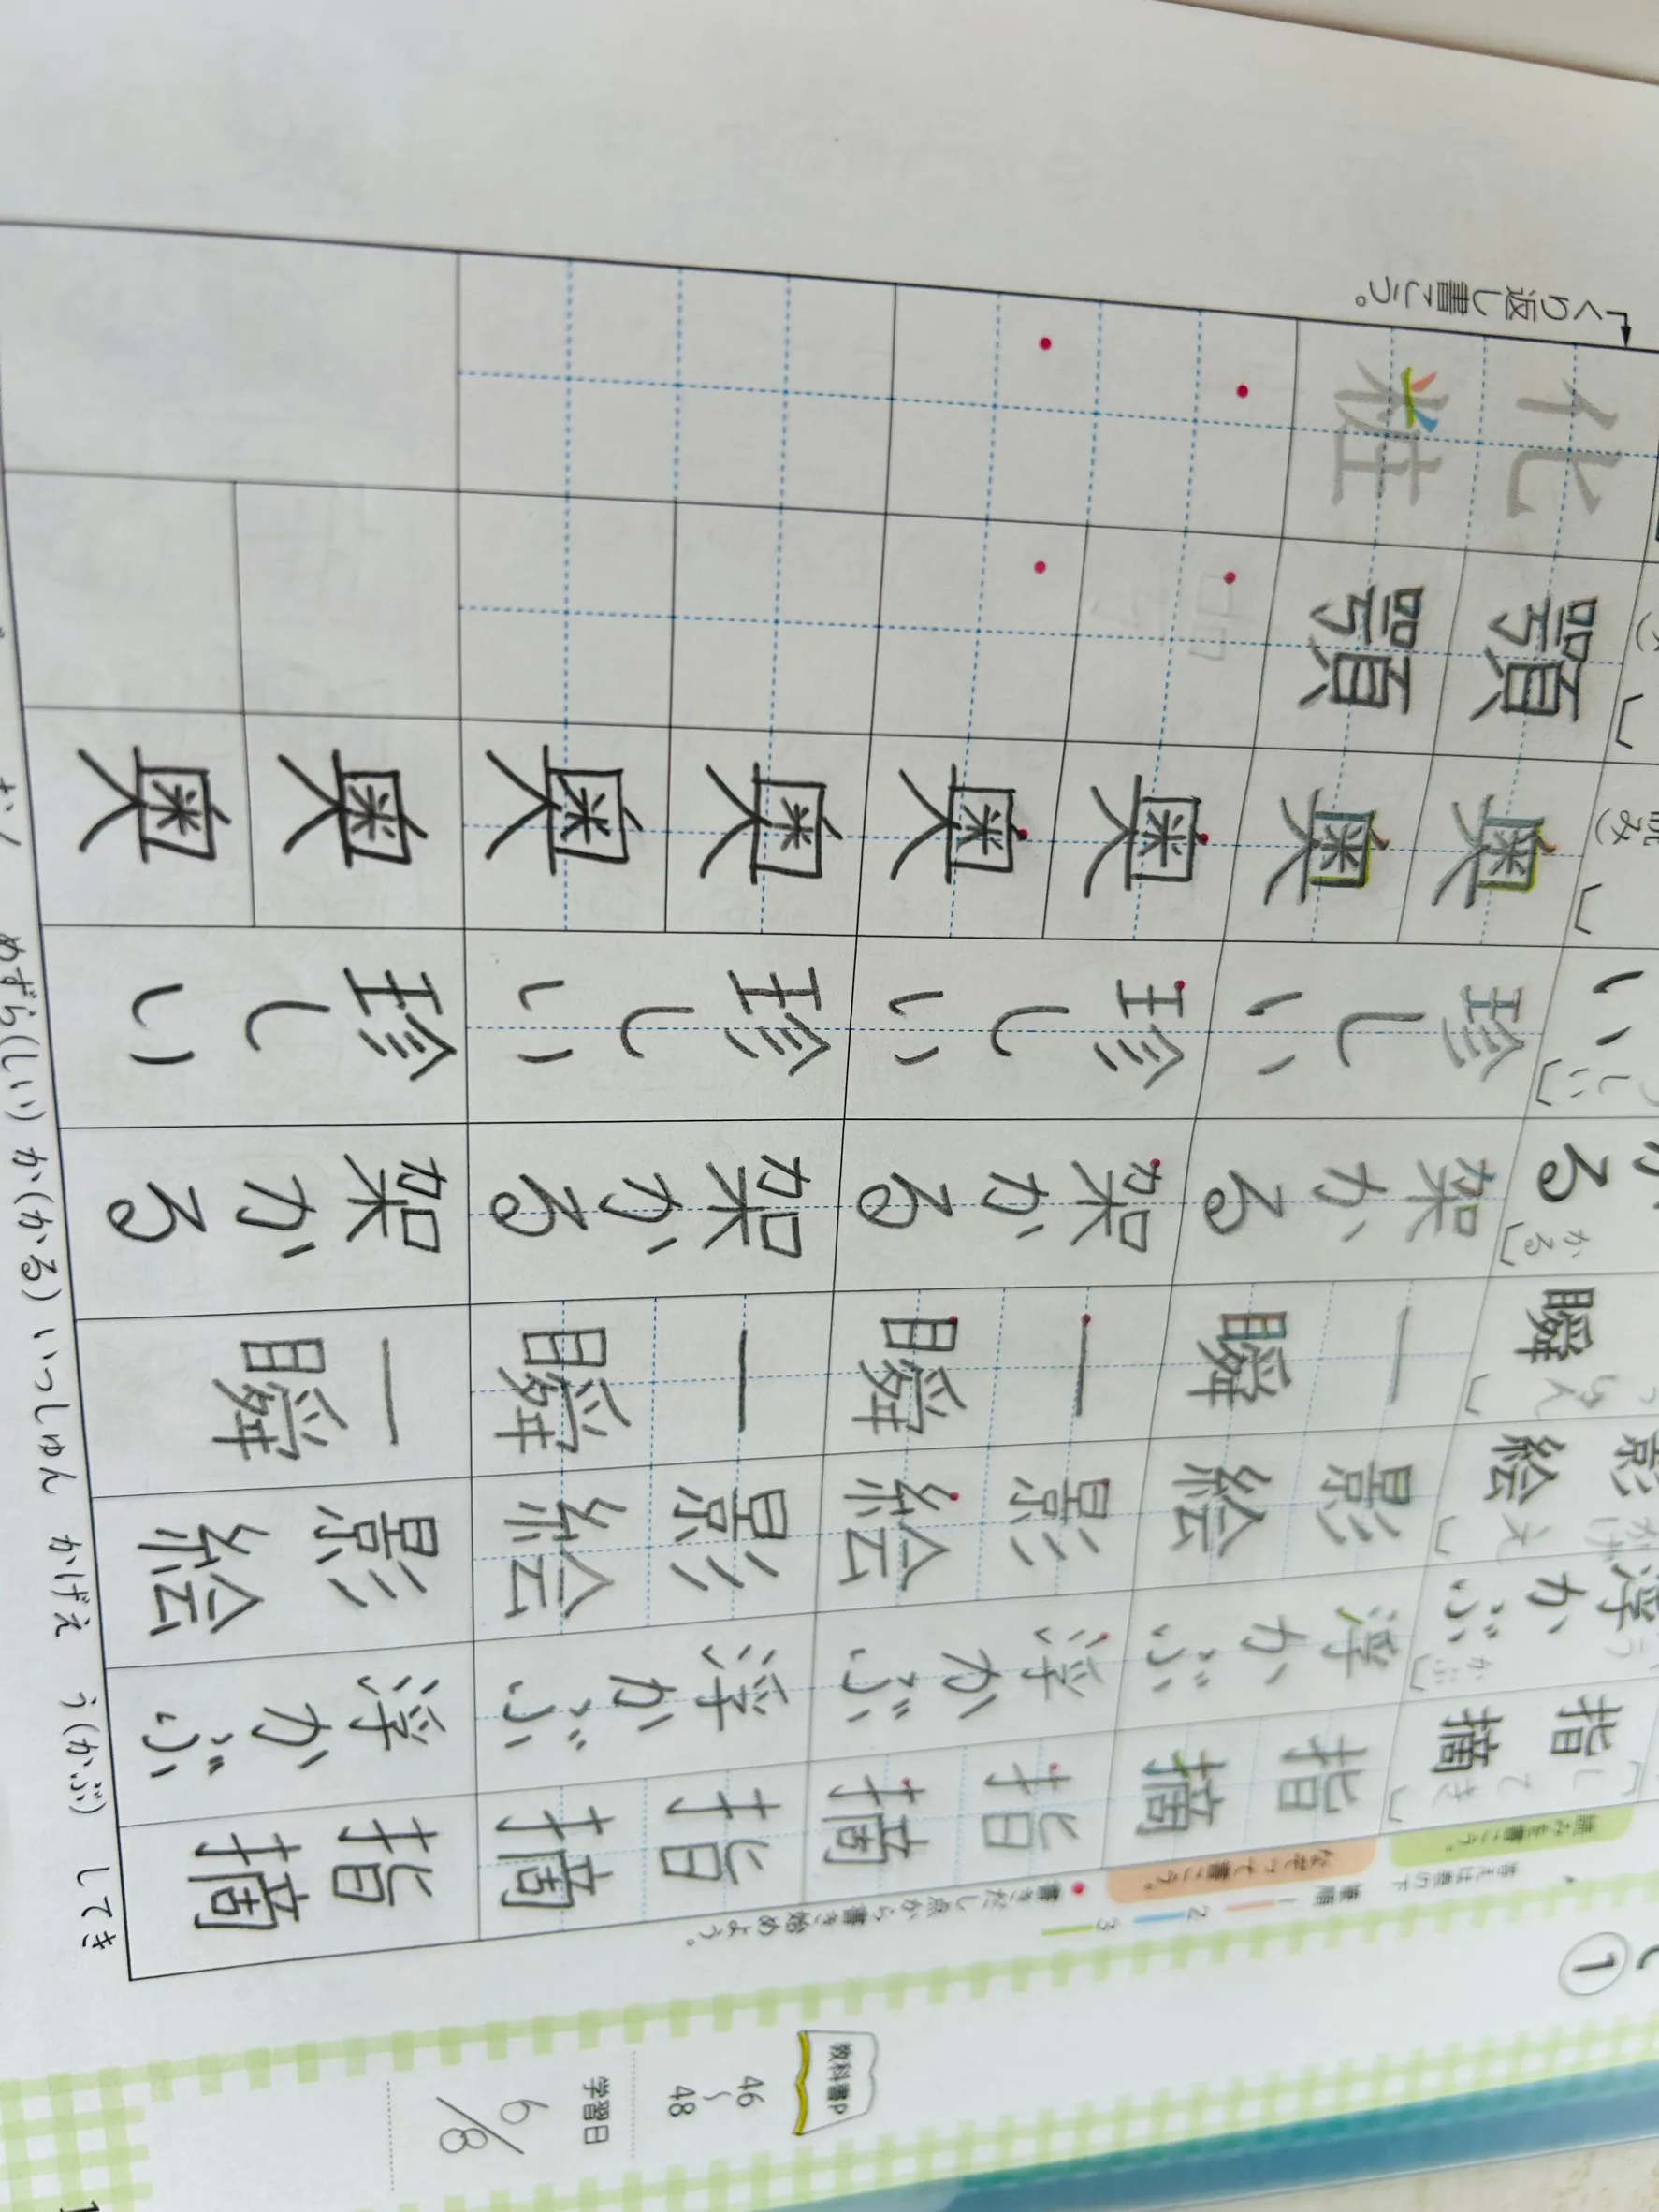 ①
教科書P
46〜48
学習日
6/8
読みを書こう。
なぞって書こう。
筆順 1 2 3
書きだし点から書き始めよう。
指摘
してき
指摘
指摘
指摘
指摘
してき
浮かぶ
う かぶ
浮かぶ
浮かぶ
浮かぶ
浮かぶ
う(かぶ)
影絵
かげ え
影絵
影絵
影絵
影絵
かげえ
瞬
一瞬
一瞬
一瞬
一瞬
いっしゅん
かる
かる
架かる
架かる
架かる
架かる
か(かる)
い
しい
珍しい
珍しい
珍しい
珍しい
めずら(しい)
奥
奥
奥
奥
奥
奥
奥
奥
顎
顎
化粧
くり返し書こう。